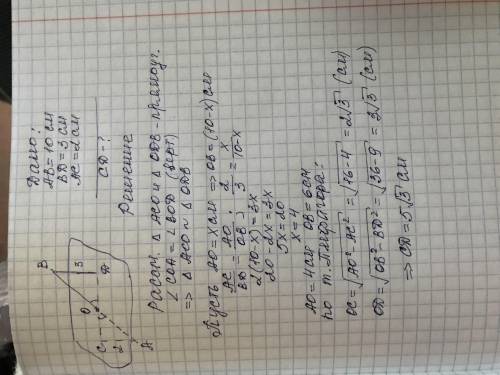 Дано:
AB = 10 см
BD = 3 см
AC = 2 см
CD - ?
B
C
O
3
D
2
A
Решение
Рассм. △ ACO и △ ODB - прямоуг.
∠ COA = ∠ BOD (верт)
=> △ AOC ∾ △ ODB
Пусть AO = x см => OB = (10-x) см
AC/BD = AO/OB ; 2/3 = x/10-x
2(10-x) = 3x
20 - 2x = 3x
5x = 20
x = 4
AO = 4 см OB = 6 см
по т. Пифагора:
OC = √AO² - AC² = √16-4 = 2√3 (см)
OD = √OB² - BD² = √36-9 = 3√3 (см)
=> CD = 5√3 см